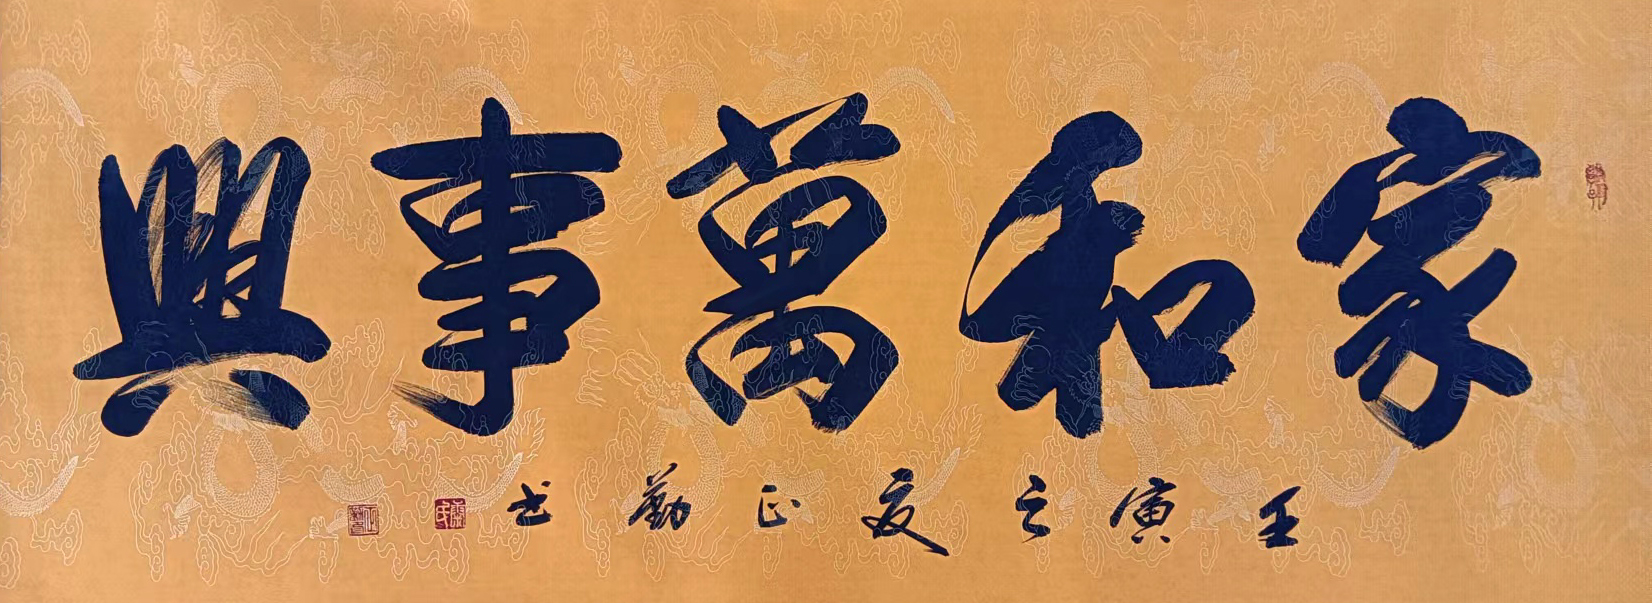 家和萬事興
壬寅之夏正勤书